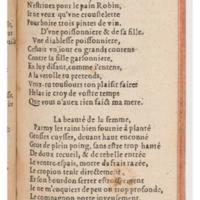 N'estrines pour le pain Robin,
Ie ne veux qu'vne croustelette
Pour boire trois pintes de vin.
D'vne poissonniere & de sa fille.
Vne diablesse poissonniere,
Cessuit vn iour en grands contens
Contre la fille garsonniere,
En luy disant, comme i'entens,
A la verolle tu pretends,
Veux-tu tousiours ton plaisir faire?
Helas ie croy de vostre temps
Que vous n'auez rien sacit ma mere.
La beauté de la femme,
Parmy les rains bien fournie à planté
Grosses cuysses, deuant haut enconné
Gros de plein poing, sans estre trop hanté
De doux recueil, & de rebelle entrée
Le ventre espais, motte du frais razée,
Le cropion tenir directement
Et son bourdon serrer estroissement
Ie ne m'enquiers de peu on trop profonde,
Le compagnon porte ioyeusement